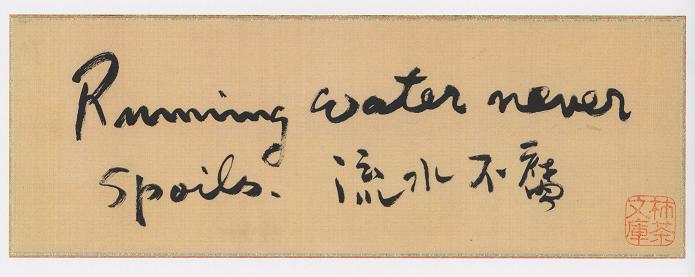 Running water never
spoils. 流水不腐
文庫